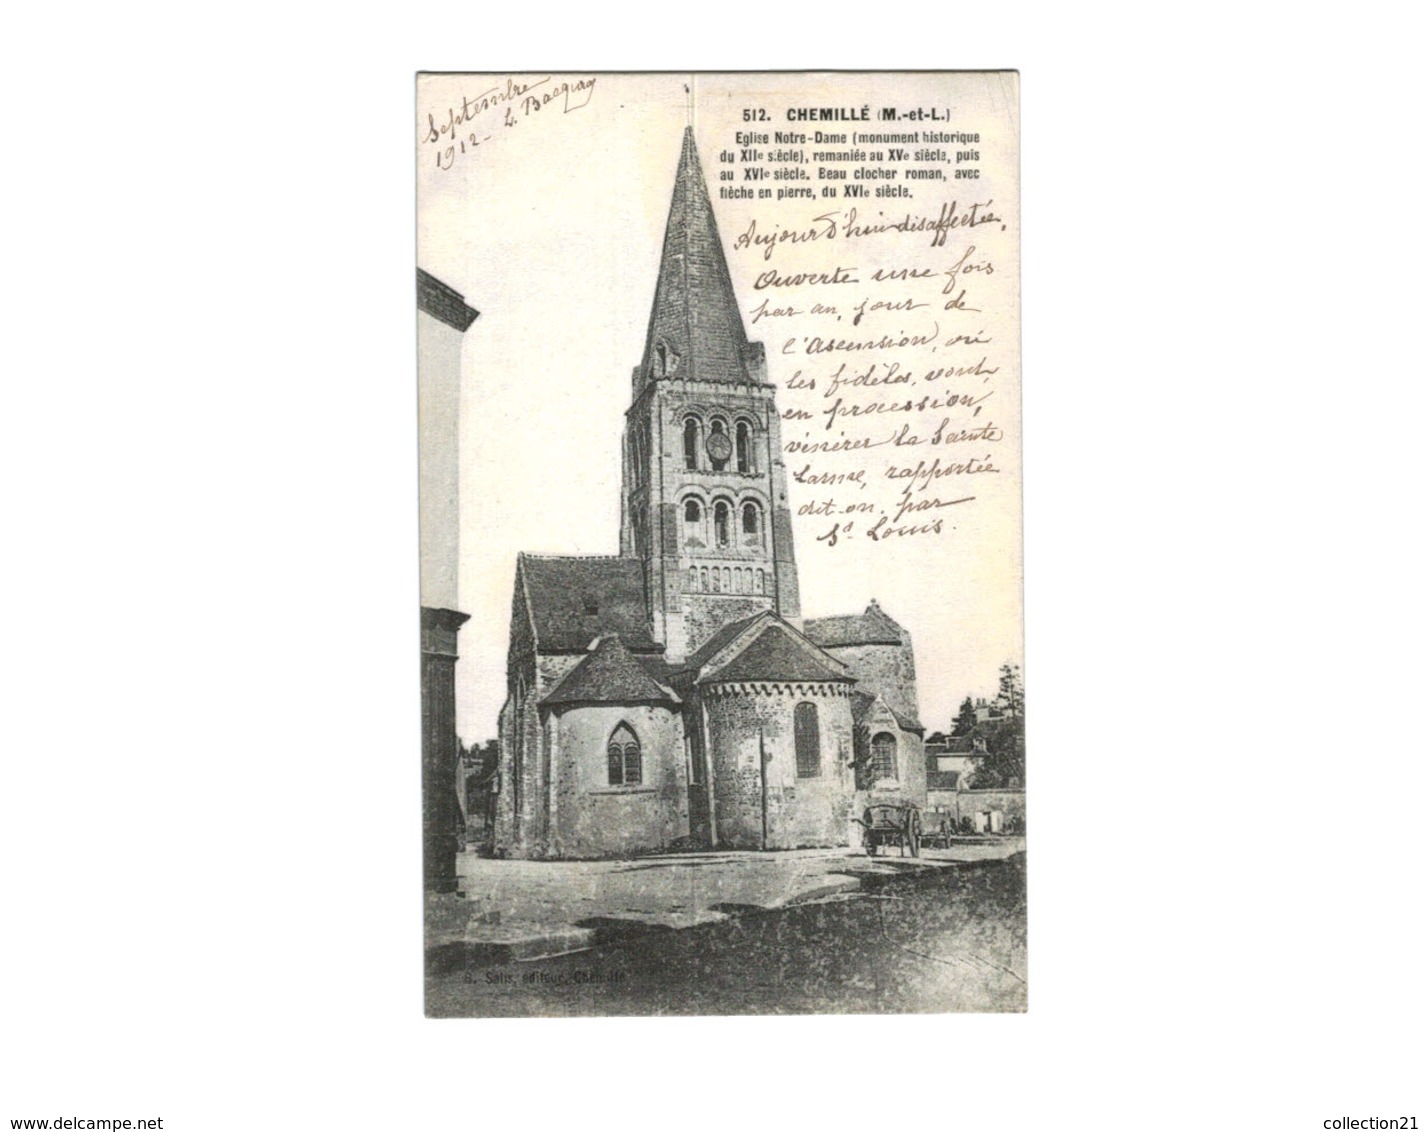 Septembre
1912 - L.
512. CHEMILLÉ (M.-et-L.)
Eglise Notre-Dame (monument historique
du XIIe siècle), remaniée au XVe siècle, puis
au XVIe siècle. Beau clocher roman, avec
flèche en pierre, du XVIe siècle.
Aujourd'hui disaffectée,
Ouverte une fois
par an, jour de
l'Ascension, où
les fidèles, vont,
en procession,
vénérer la Sainte
Larme, rapportée
dit-on, par
St Louis.
B. Salis, éditeur, Chemillé
www.delcampe.net
collection21